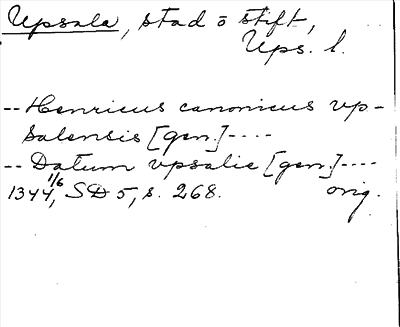 Upsala, stad o stift,
Ups. l.
-- Henricus canonicus vp-
salensis [gen.] ----
-- Datum vpsalie [gen.] ----
1344 1/6, SD 5, s. 268. orig.